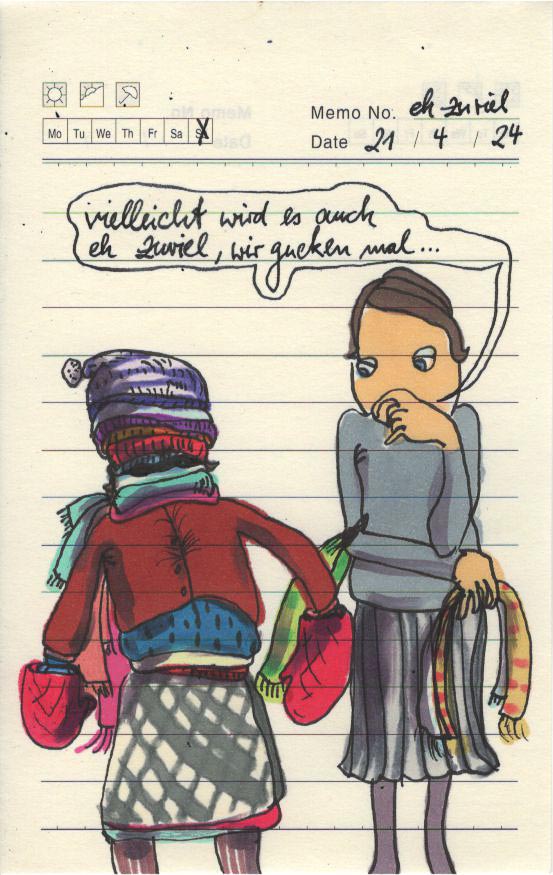 Memo No. eh zuviel
Mo Tu We Th Fr Sa
Date 21 / 4 / 24
vielleicht wird es auch
eh zuviel, wir gucken mal...